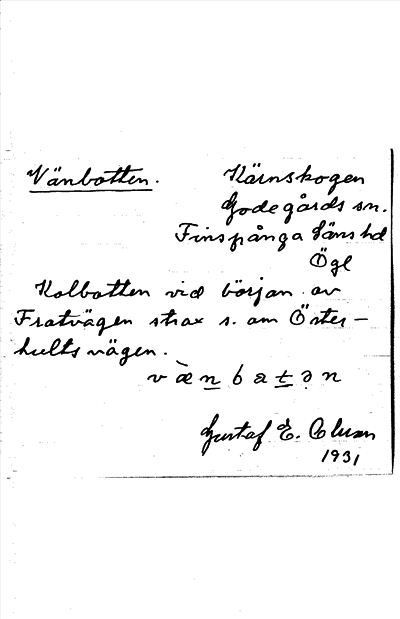 Vänbotten. Kärnskogen
Godegårds sn.
Finspånga läns hd
Ögl
Kolbotten vid början av
Fratvägen strax s. om Öster-
hultsvägen.
v æ̀ n b a t ə n
Gustaf E. Olsson
1931